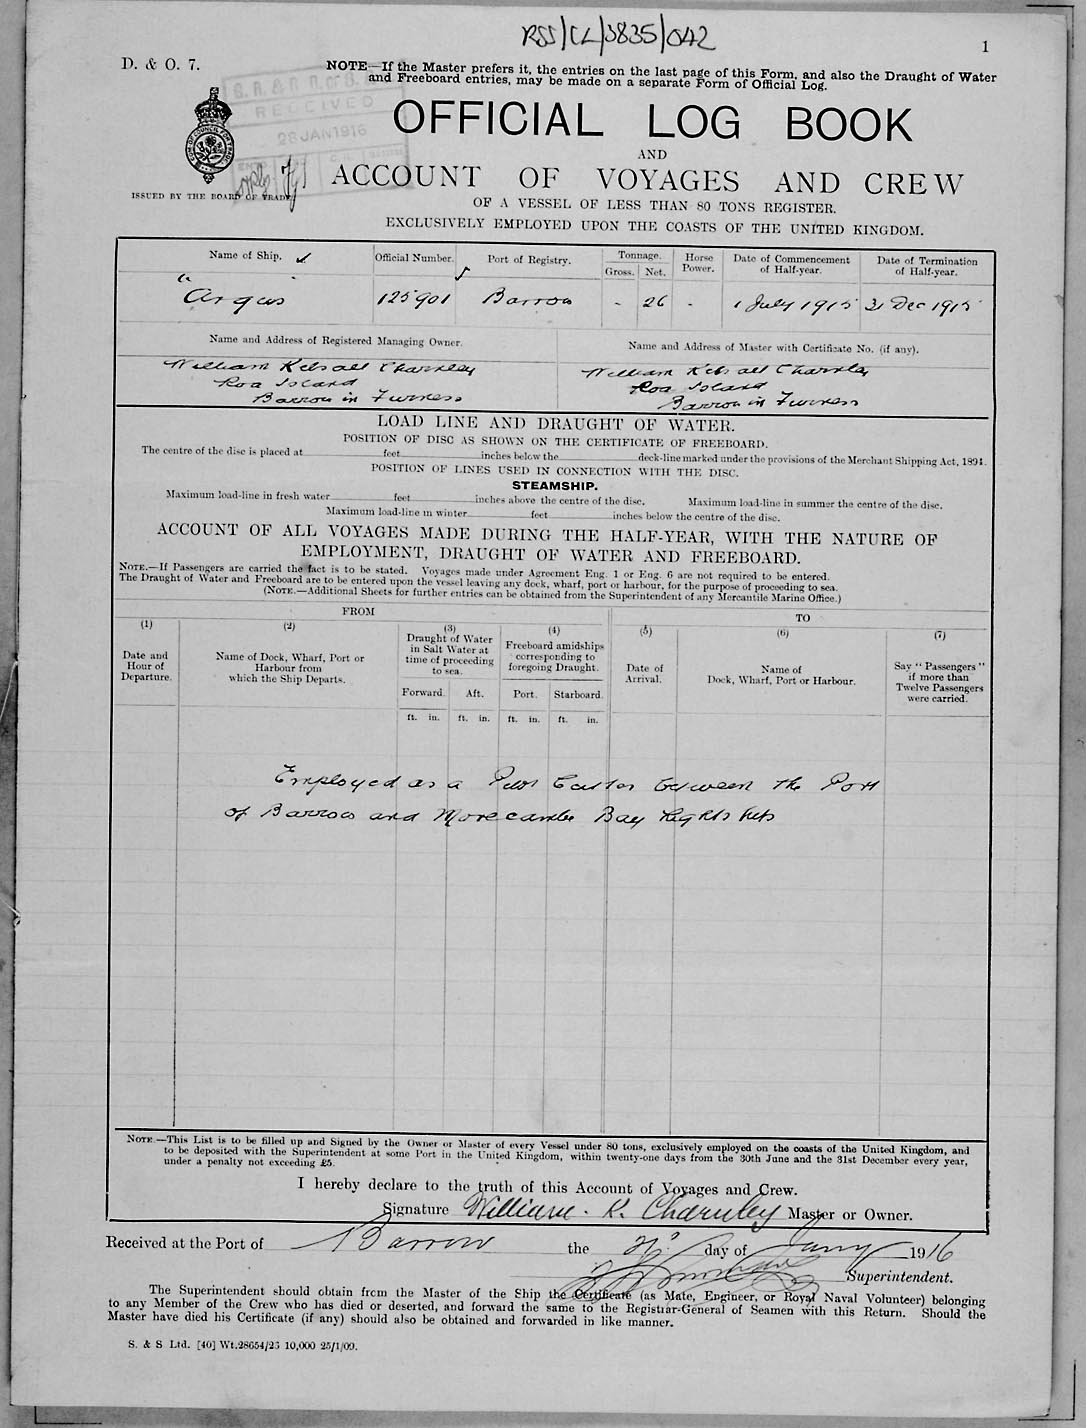 RSS/CL/3835/042
1
D. & O. 7.
NOTE—If the Master prefers it, the entries on the last page of this Form, and also the Draught of Water
and Freeboard entries, may be made on a separate Form of Official Log.
RECEIVED
28 JAN 1916
OFFICIAL LOG BOOK
AND
ACCOUNT OF VOYAGES AND CREW
ISSUED BY THE BOARD OF TRADE
OF A VESSEL OF LESS THAN 80 TONS REGISTER.
EXCLUSIVELY EMPLOYED UPON THE COASTS OF THE UNITED KINGDOM.
Name of Ship. Official Number. Port of Registry. Tonnage. Horse Power. Date of Commencement of Half-year. Date of Termination of Half-year.
Gross. Net.
"Argus" 125901 Barrow - 26 - 1 July 1915 31 Dec 1915
Name and Address of Registered Managing Owner. Name and Address of Master with Certificate No. (if any).
William Kelsall Charnley William Kelsall Charnley
Roa Island Roa Island
Barrow in Furness Barrow in Furness
LOAD LINE AND DRAUGHT OF WATER.
POSITION OF DISC AS SHOWN ON THE CERTIFICATE OF FREEBOARD.
The centre of the disc is placed at feet inches below the deck-line marked under the provisions of the Merchant Shipping Act, 1894.
POSITION OF LINES USED IN CONNECTION WITH THE DISC.
STEAMSHIP.
Maximum load-line in fresh water feet inches above the centre of the disc. Maximum load-line in summer the centre of the disc.
Maximum load-line in winter feet inches below the centre of the disc.
ACCOUNT OF ALL VOYAGES MADE DURING THE HALF-YEAR, WITH THE NATURE OF
EMPLOYMENT, DRAUGHT OF WATER AND FREEBOARD.
NOTE.—If Passengers are carried the fact is to be stated. Voyages made under Agreement Eng. 1 or Eng. 6 are not required to be entered.
The Draught of Water and Freeboard are to be entered upon the vessel leaving any dock, wharf, port or harbour, for the purpose of proceeding to sea.
(NOTE.—Additional Sheets for further entries can be obtained from the Superintendent of any Mercantile Marine Office.)
FROM TO
(1) (2) (3) (4) (5) (6) (7)
Date and
Hour of
Departure.
Name of Dock, Wharf, Port or
Harbour from
which the Ship Departs.
Draught of Water
in Salt Water at
time of proceeding
to sea.
Freeboard amidships
corresponding to
foregoing Draught.
Date of
Arrival.
Name of
Dock, Wharf, Port or Harbour.
Say "Passengers"
if more than
Twelve Passengers
were carried.
Forward. Aft. Port. Starboard.
ft. in. ft. in. ft. in. ft. in.
Employed as a Pilot Cutter between the Port
of Barrow and Morecambe Bay Lightship
NOTE.—This List is to be filled up and Signed by the Owner or Master of every Vessel under 80 tons, exclusively employed on the coasts of the United Kingdom, and
to be deposited with the Superintendent at some Port in the United Kingdom, within twenty-one days from the 30th June and the 31st December every year,
under a penalty not exceeding £5.
I hereby declare to the truth of this Account of Voyages and Crew.
Signature William. K. Charnley Master or Owner.
Received at the Port of Barrow the day of Jany 1916
Superintendent.
The Superintendent should obtain from the Master of the Ship the Certificate (as Mate, Engineer, or Royal Naval Volunteer) belonging
to any Member of the Crew who has died or deserted, and forward the same to the Registrar-General of Seamen with this Return. Should the
Master have died his Certificate (if any) should also be obtained and forwarded in like manner.
S. & S Ltd. [40] Wt.28654/23 10,000 25/1/09.